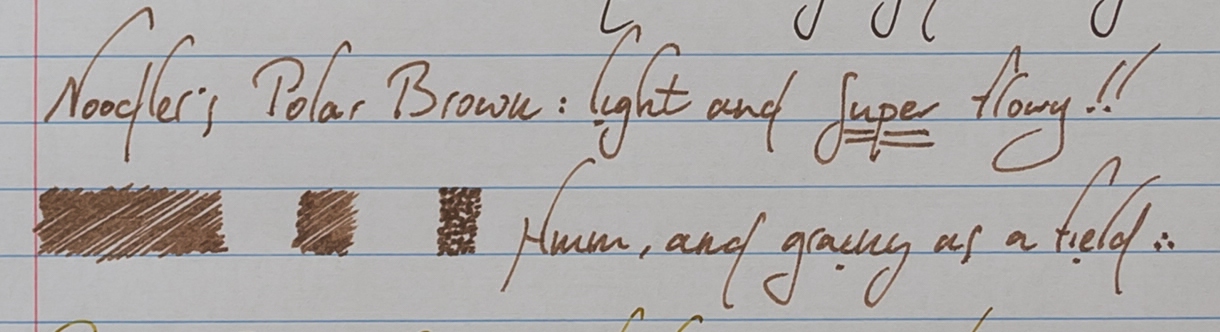 Noodler's Polar Brown: light and super flowy!!
Hmm, and grainy as a field∴